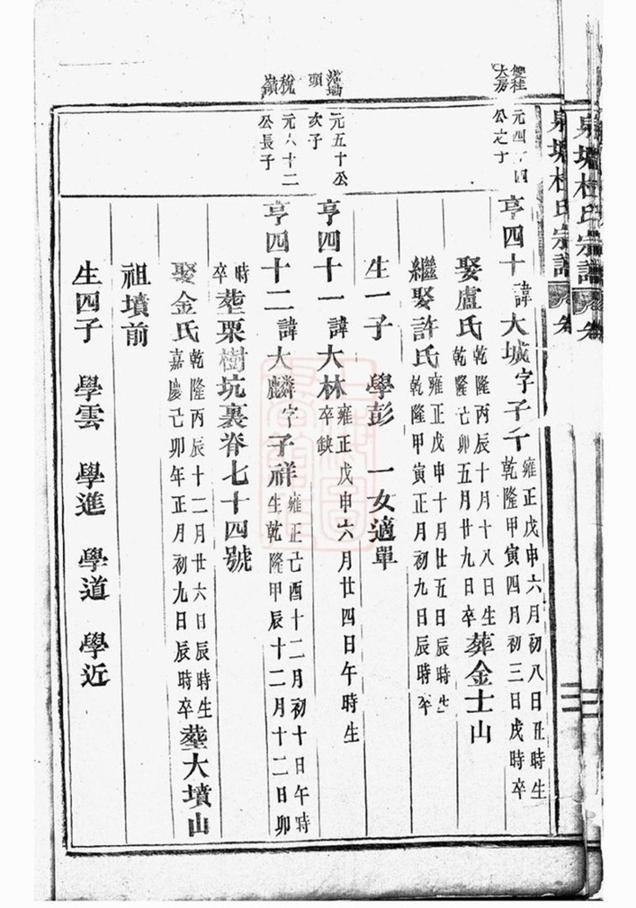 泉塘杜氏宗譜 卷
泉塘杜氏宗譜 卷
三
雙桂大房
元四十四公之子
亨四十 諱大城字子千 雍正戊申六月初八日丑時生 乾隆甲寅四月初三日戌時卒
娶盧氏 乾隆丙辰十月十八日生 乾隆己卯五月廿九日卒 葬金士山
繼娶許氏 雍正戊申十月廿五日辰時生 乾隆甲寅正月初九日辰時卒
生一子 學彭 一女適單
頭
元五十公次子
亨四十一 諱大林 雍正戊申六月廿四日午時生 卒缺
稅嶺
元六十二公長子
亨四十二 諱大麟字子祥 雍正己酉十二月初十日午時生乾隆甲辰十二月十二日卯
時卒 塟栗樹坑裏脊七十四號
娶金氏 乾隆丙辰十二月廿六日辰時生 嘉慶己卯年正月初九日辰時卒 塟大墳山
祖墳前
生四子 學雲 學進 學道 學近